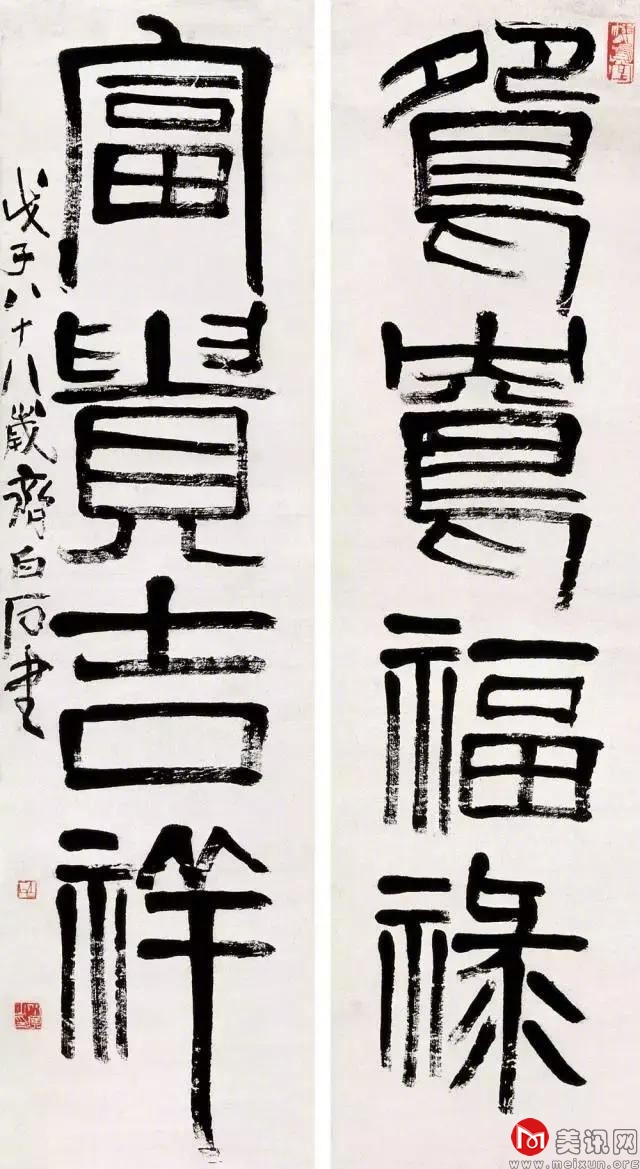 鴛鴦福祿
富貴吉祥
戊子八十八歲齊白石书
美讯网
www.meixun.org